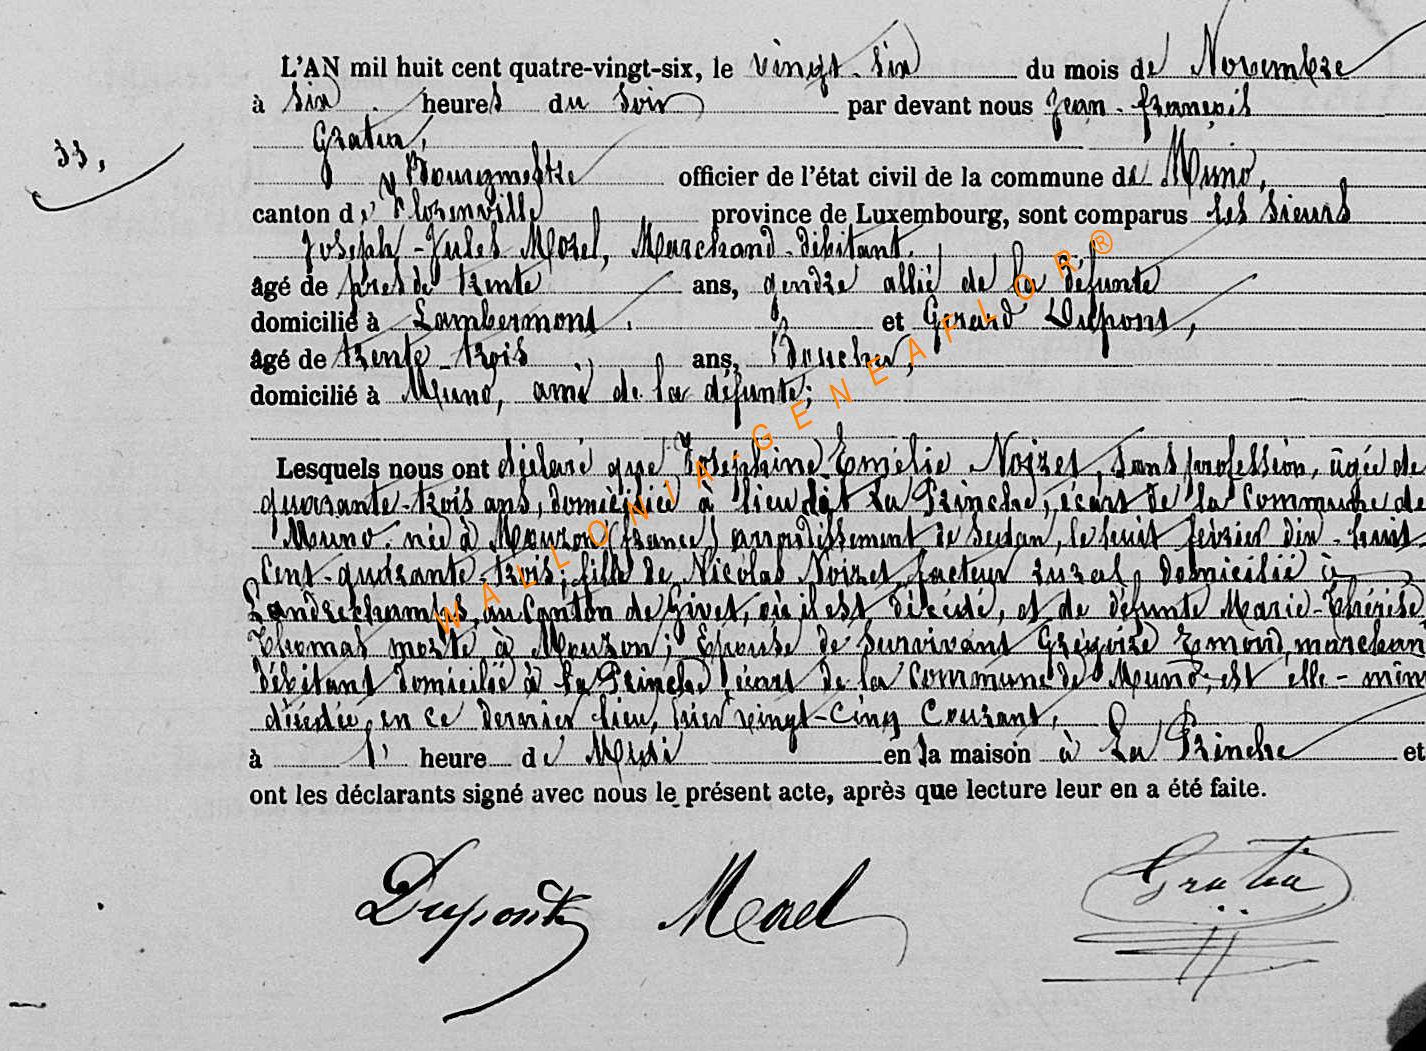 L'AN mil huit cent quatre-vingt-six, le vingt-six du mois de Novembre
à six heures du soir par devant nous Jean-François
Gratia,
33,
Bourgmestre officier de l'état civil de la commune de Muno,
canton de Florenville province de Luxembourg, sont comparus les sieurs
Joseph-Jules Morel, Marchand-débitant.
âgé de près de trente ans, gendre allié de la défunte
domicilié à Lambermont. et Gérard Dupont,
âgé de trente-trois ans, Boucher,
domicilié à Muno, ami de la défunte;
Lesquels nous ont déclaré que Joséphine Emélie Noizet, sans profession, âgée de
quarante-trois ans, domiciliée à lieu dit La Prinche, écart de la Commune de
Muno, née à Mouzon (france) arrondissement de Sedan, le huit février dix-huit
cent-quarante-trois; fille de Nicolas Noizet, facteur rural, domicilié à
Landrechamps, au Canton de Givet, où il est décédé, et de défunte Marie-Thérèse
Thomas morte à Mouzon; Epouse de survivant Grégoire Emond, marchan
débitant domicilié à la Prinche, écart de la Commune de Muno, est elle-mêm
décédée, en ce dernier lieu, hier vingt-cinq Courant,
à 1 heure de Midi en la maison à La Prinche et
ont les déclarants signé avec nous le présent acte, après que lecture leur en a été faite.
Dupont Morel Gratia
WALLONIA-GENEAFLOR®